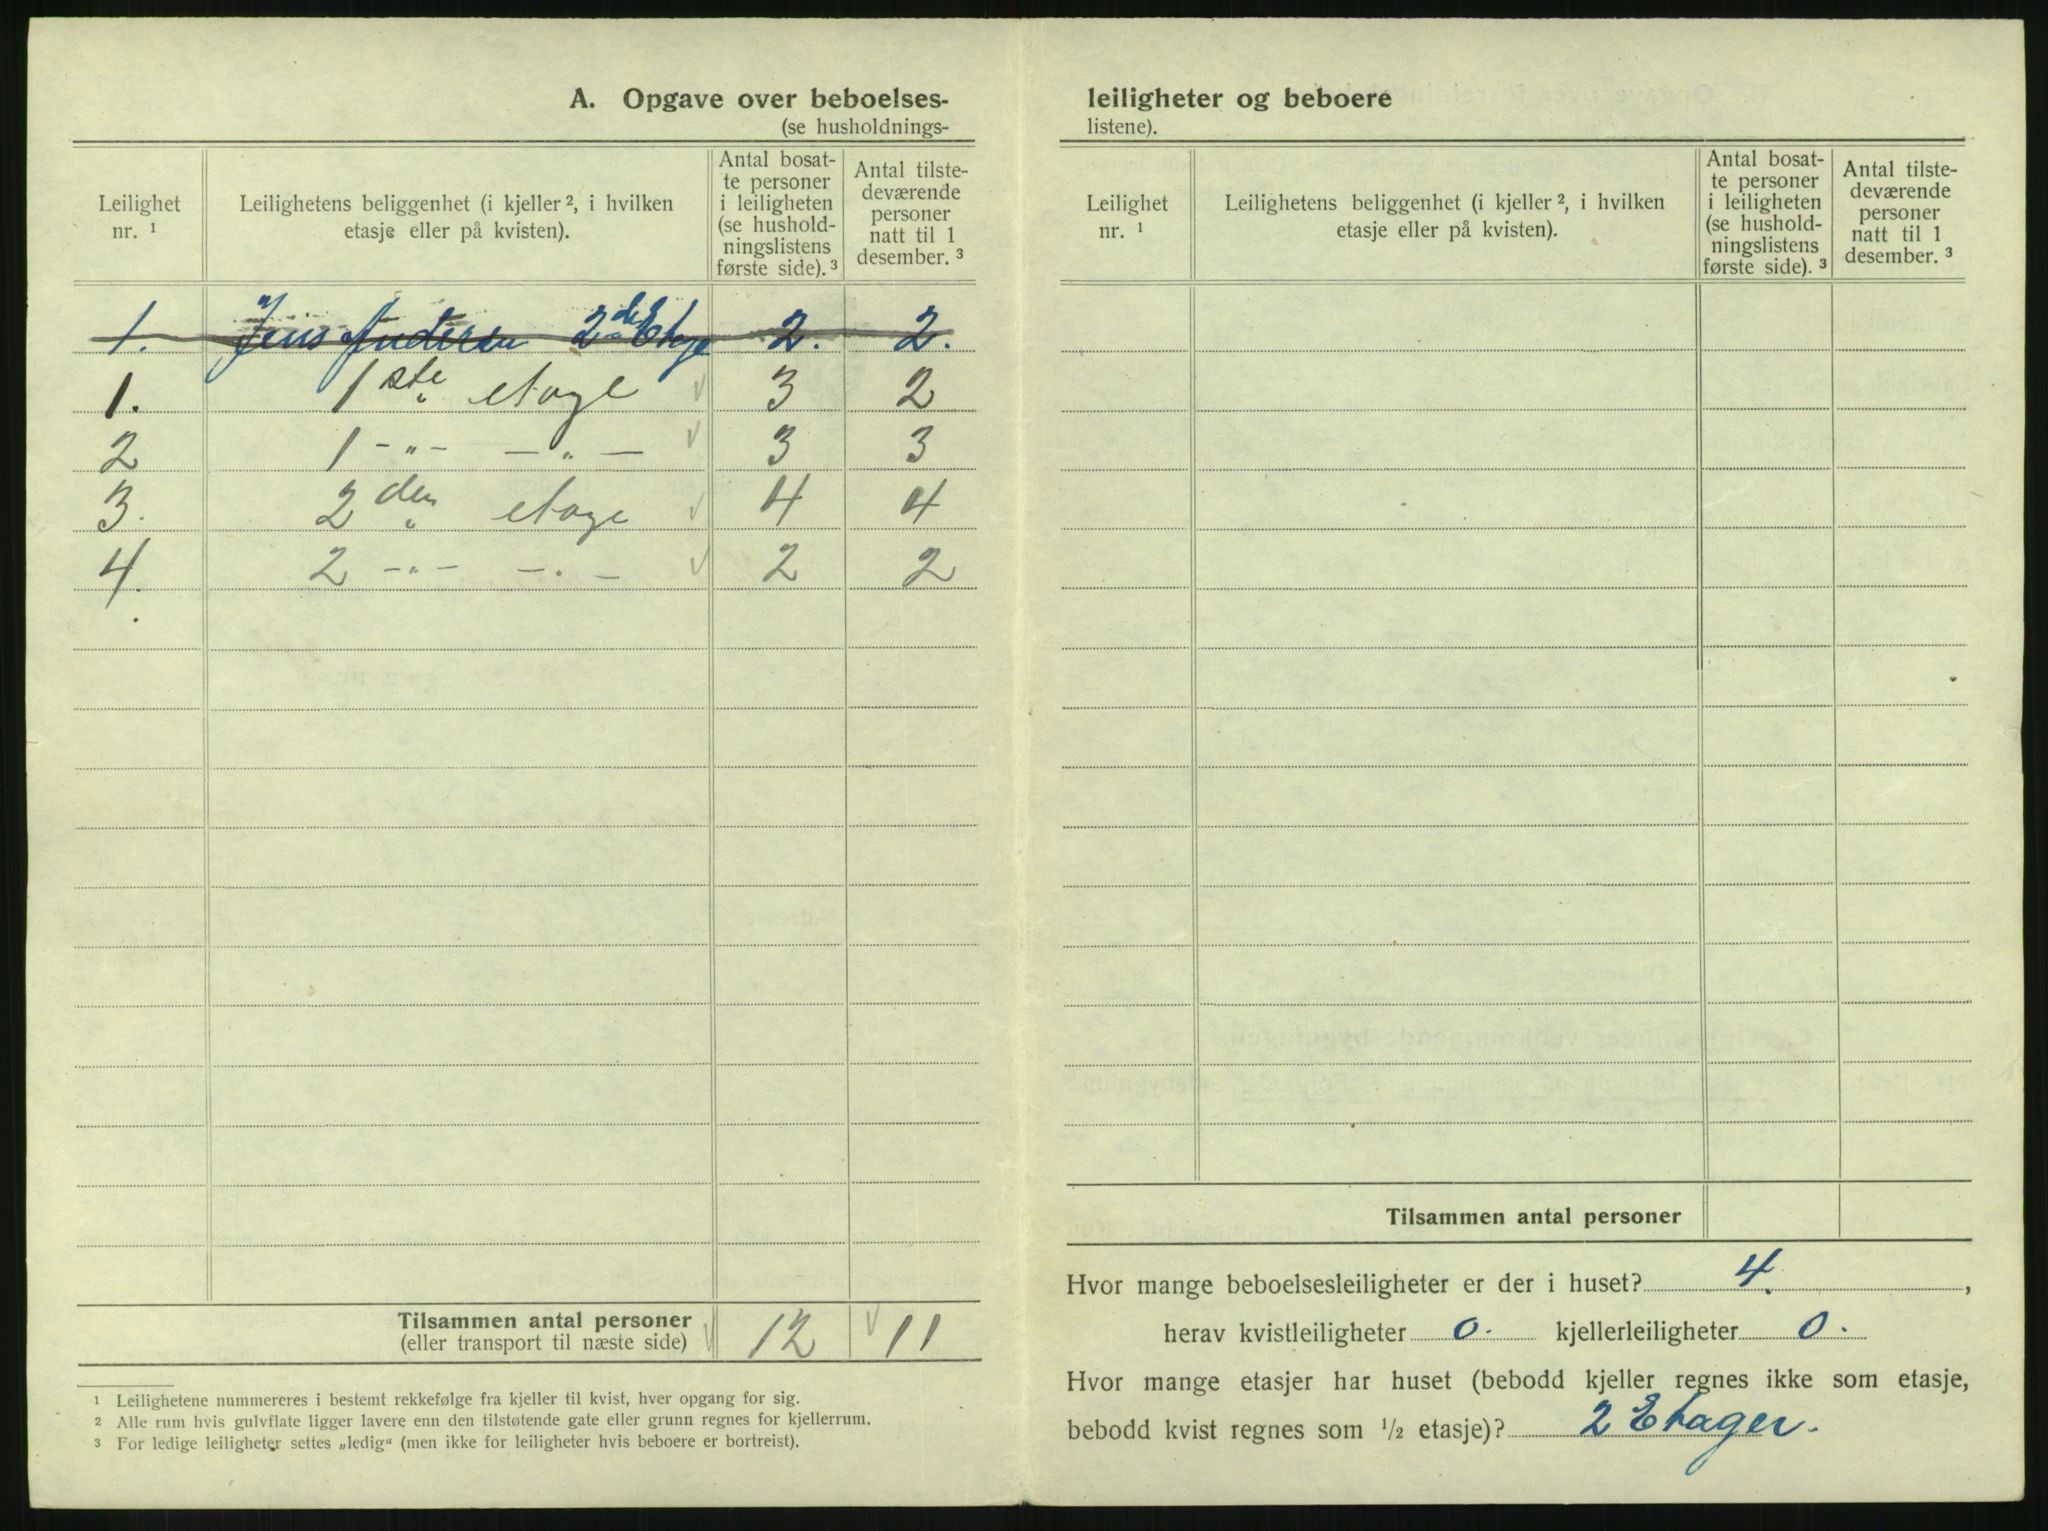 A. Opgave over beboelses-
(se husholdnings-
Leilighet nr. ¹
Leilighetens beliggenhet (i kjeller ², i hvilken etasje eller på kvisten).
Antal bosat-
te personer
i leiligheten
(se hushold-
ningslistens
første side). ³
Antal tilste-
deværende
personer
natt til 1
desember. ³
1. Jens Andersen 2den Etage 2. 2.
1. 1ste etage 3 2
2 1 -"- -"- 3 3
3. 2den etage 4 4
4. 2 -"- -"- 2 2
Tilsammen antal personer
(eller transport til næste side) 12 11
¹ Leilighetene nummereres i bestemt rekkefølge fra kjeller til kvist, hver opgang for sig.
² Alle rum hvis gulvflate ligger lavere enn den tilstøtende gate eller grunn regnes for kjellerrum.
³ For ledige leiligheter settes „ledig“ (men ikke for leiligheter hvis beboere er bortreist).
leiligheter og beboere
listene).
Leilighet nr. ¹
Leilighetens beliggenhet (i kjeller ², i hvilken etasje eller på kvisten).
Antal bosat-
te personer
i leiligheten
(se hushold-
ningslistens
første side). ³
Antal tilste-
deværende
personer
natt til 1
desember. ³
Tilsammen antal personer
Hvor mange beboelsesleiligheter er der i huset? 4.,
herav kvistleiligheter 0. kjellerleiligheter 0.
Hvor mange etasjer har huset (bebodd kjeller regnes ikke som etasje,
bebodd kvist regnes som ½ etasje)? 2 Etager.